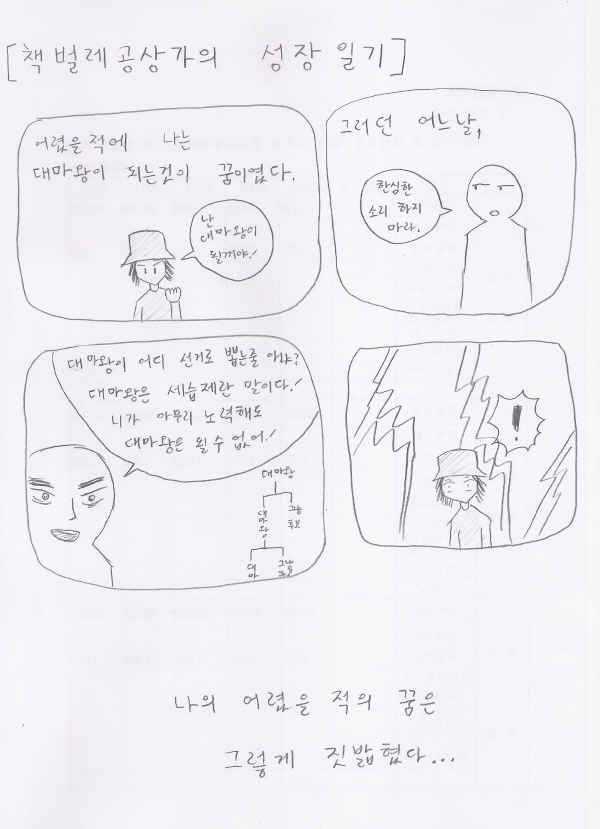 [책벌레공상가의 성장일기]
어렸을 적에 나는
대마왕이 되는것이 꿈이였다.
난
대마왕이
될꺼야!
그러던 어느날,
한심한
소리 하지
마라.
대마왕이 어디 선거로 뽑는줄 아냐?
대마왕은 세습제란 말이다!
니가 아무리 노력해도
대마왕은 될 수 없어!
대마왕
대마왕
그냥
후보
!
나의 어렸을 적의 꿈은
그렇게 짓밟혔다...